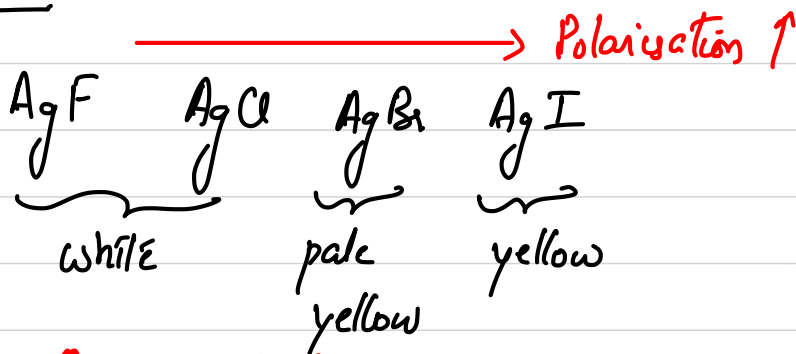 Polarisation ↑
AgF AgCl AgBr AgI
white pale yellow
yellow